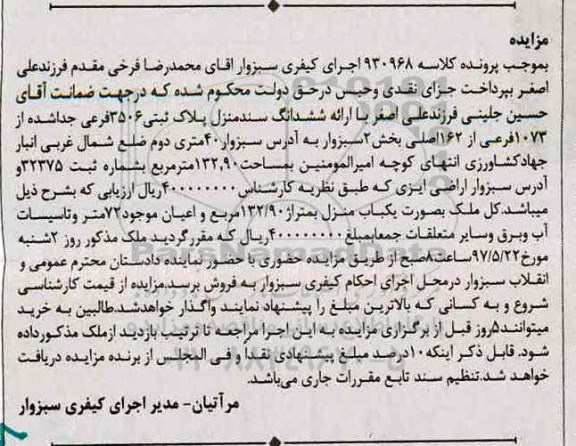 مزایده
بموجب پرونده کلاسه ۹۳۰۹۶۸ اجرای کیفری سبزوار اقای محمدرضا فرخی مقدم فرزندعلی
اصغر بپرداخت جزای نقدی وحبس درحق دولت محکوم شده که درجهت ضمانت آقای
حسین جلینی فرزندعلی اصغر با ارائه ششدانگ سندمنزل پلاک ثبتی۳۵۰۶فرعی جداشده از
۱۰۷۳فرعی از ۱۶۲اصلی بخش۲سبزوار به آدرس سبزوار۴۰متری دوم ضلع شمال غربی انبار
جهادکشاورزی انتهای کوچه امیرالمومنین بمساحت۱۳۲,۹۰مترمربع بشماره ثبت ۳۲۳۷۵و
آدرس سبزوار اراضی ایزی که طبق نظریه کارشناس۴۰۰۰۰۰۰۰۰ریال ارزیابی که بشرح ذیل
میباشد.کل ملک بصورت یکباب منزل بمتراژ۱۳۲/۹۰مربع و اعیان موجود۷۲متر وتاسیسات
آب وبرق وسایر متعلقات جمعابمبلغ۴۰۰۰۰۰۰۰۰ریال که مقررگردید.ملک مذکور روز ۲شنبه
مورخ۹۷/۵/۲۲ساعت۸صبح از طریق مزایده حضوری با حضور نماینده دادستان محترم عمومی و
انقلاب سبزوار درمحل اجرای احکام کیفری سبزوار به فروش برسد.مزایده از قیمت کارشناسی
شروع و به کسانی که بالاترین مبلغ را پیشنهاد نمایند واگذار خواهدشد.طالبین به خرید
میتوانند۵روز قبل از برگزاری مزایده به این اجرا مراجعه تا ترتیب بازدید ازملک مذکورداده
شود. قابل ذکر اینکه۱۰درصد مبلغ پیشنهادی نقدا و فی المجلس از برنده مزایده دریافت
خواهد شد.تنظیم سند تابع مقررات جاری می‌باشد.
مرآتیان- مدیر اجرای کیفری سبزوار